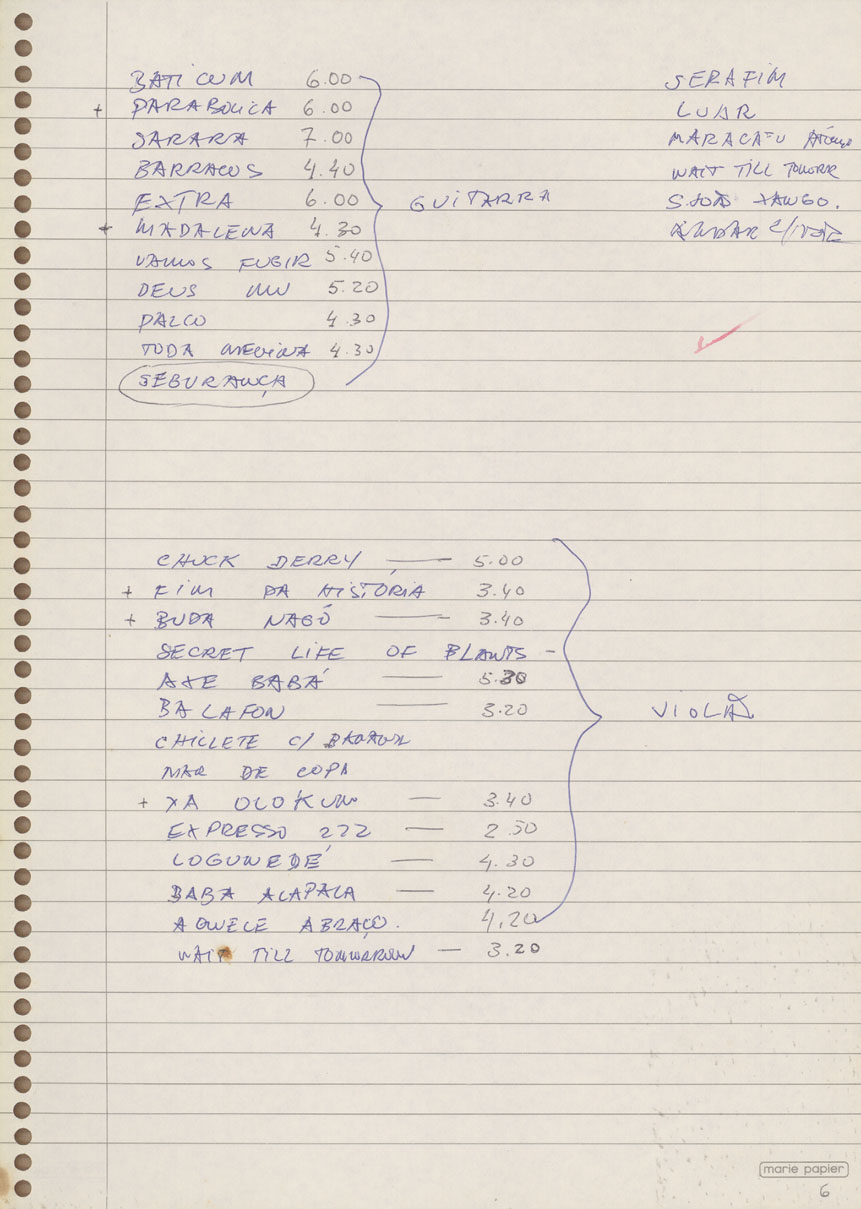 BATICUM 6.00
+ PARABOLICA 6.00
SARARA 7.00
BARRACOS 4.40
EXTRA 6.00
GUITARRA
+ MADALENA 4.30
VAMOS FUGIR 5.40
DEUS MU 5.20
PALCO 4.30
TODA MENINA 4.30
SEGURANÇA
SERAFIM
LUAR
MARACATU
WAIT TILL TOMORR
S. JOÃO XANGO.
ANDAR C/
CHUCK BERRY — 5.00
+ FIM DA HISTÓRIA 3.40
+ BUDA NAGÔ — 3.40
SECRET LIFE OF PLANTS -
AXE BABÁ — 5.30
BALAFON — 3.20
VIOLÃO
CHICLETE C/ BANANA
MAR DE COPA
+ XA OLOKUM — 3.40
EXPRESSO 222 — 2.50
LOGUNEDÉ — 4.30
BABA ALAPALA — 4.20
AQUELE ABRAÇO. 4.20
WAIT TILL TOMMORROW — 3.20
marie papier
6